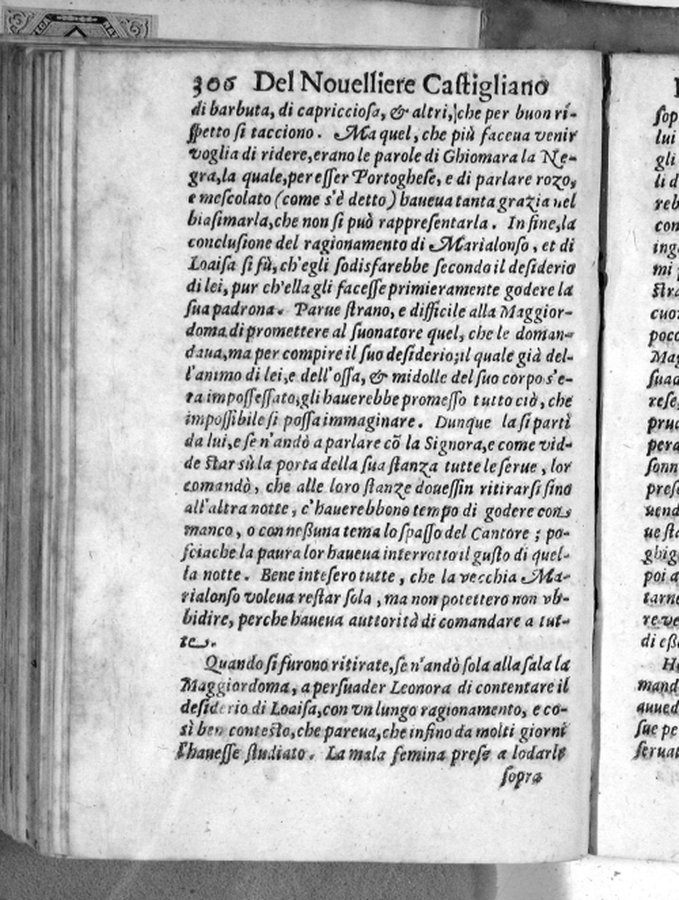 306 Del Nouelliere Castigliano
di barbuta, di capricciosa, & altri, che per buon ri-
spetto si tacciono. Ma quel, che più faceua venir
voglia di ridere, erano le parole di Ghiomara la Ne-
gra, la quale, per esser Portoghese, e di parlare rozo,
e mescolato (come s'è detto) haueua tanta grazia nel
biasimarla, che non si può rappresentarla. In fine, la
conclusione del ragionamento di Marialonso, et di
Loaisa si fù, ch'egli sodisfarebbe secondo il desiderio
di lei, pur ch'ella gli facesse primieramente godere la
sua padrona. Parue strano, e difficile alla Maggior-
doma di promettere al suonatore quel, che le doman-
daua, ma per compire il suo desiderio; il quale già del-
l'animo di lei, e dell'ossa, & midolle del suo corpo s'e-
ra impossessato, gli hauerebbe promesso tutto ciò, che
impossibile si possa immaginare. Dunque la si partì
da lui, e se n'andò a parlare cō la Signora, e come vid-
de star sù la porta della sua stanza tutte le serue, lor
comandò, che alle loro stanze douessin ritirarsi sino
all'altra notte, c'hauerebbono tempo di godere con
manco, o con neßuna tema lo spasso del Cantore; po-
sciache la paura lor haueua interrotto il gusto di quel-
la notte. Bene intesero tutte, che la vecchia Ma-
rialonso voleua restar sola, ma non potettero non vb-
bidire, perche haueua autorità di comandare a tut-
te.
Quando si furono ritirate, se n'andò sola alla sala la
Maggiordoma, a persuader Leonora di contentare il
desiderio di Loaisa, con vn lungo ragionamento, e co-
sì ben contesto, che pareua, che infino da molti giorni
l'hauesse studiato. La mala femina prese a lodarle
sopra